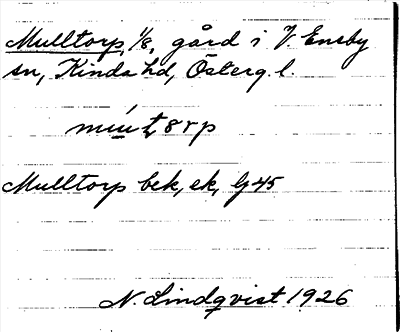 Mulltorp, 1/8, gård i V. Eneby
sn, Kinda hd, Österg. l.
Mulltorp bek, ek, Gj 45
N. Lindqvist 1926